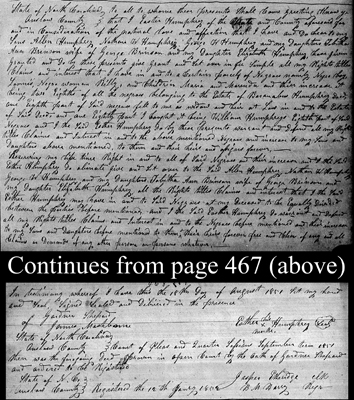 State of North Carolina to all to whom these presents Shall Come greeting Know ye
Onslow County that I Easter Humphrey of the State and County aforesaid for
and in Consideration of the natural love and affection that I have and do bear to my
Sons Allen Humphrey Nathan W Humphrey George W Humphrey and my Daughters
Ann Herinan wife of George Herinan and my Daughter Elizabeth Humphrey have
granted and do by these presents give grant and let over in fee Simple all my Right titles
Claims and interest that I have in and to a Certain parcels of Negroes namely Negro boy
woman Milly and Children Maria and Manuel and their increase
being one Eighth of all the negroes belonging to the Estate of Humphrey Decd
one Eighth part of Said negroes fell to me as widow and heir at law to the Estate
of Said Decd and one Eighth I bought it being William Humphrey Eighth part of Said
Negroes and I the Said Esther Humphrey do by these presents warrant and defend all my Right
titles Claims and interest of the above mentioned Negroes and increase to my Said Sons and
Daughters above mentioned, to them and their heirs and assigns forever
Reserving my life time Right in and to all of Said Negroes and their increase and I the Said
Esther Humphrey do alienate give and let over to the Said Allen Humphrey, Nathan W Humphrey
George W Humphrey and my Daughters Ann Herinan wife of George Herinan and
my Daughter Elizabeth Humphrey all the Rights titles Claims and interest that I the Said
Esther Humphrey may have in and to Said Negroes at my Decease to be Equally Divided
between them before mentioned, and I the Said Esther Humphrey do warrant and defend
all my Rights titles Claims and interest in and to the Negroes before mentioned and their increase
to my Sons and Daughters before mentioned to them their heirs forever free and Clear of any and all
Claims or Demands of any other person or persons whatever
Continues from page 467 (above)
In testimony whereof I have this the 18th Day of August 1851 Set my hand
and Seal, Signed Sealed and Delivered in the presence
of Gardner Shepard Esther Humphrey Seal
James Mashburn marke
State of North Carolina
Onslow County Court of Pleas and Quarter Sessions September Term 1851
then was the foregoing Deed proven in open Court by the oath of Gardner Shepard
and ordered to be Registered
State of N. C. Jasper Etheridge clk
Onslow County Registered the 12th Jany 1852